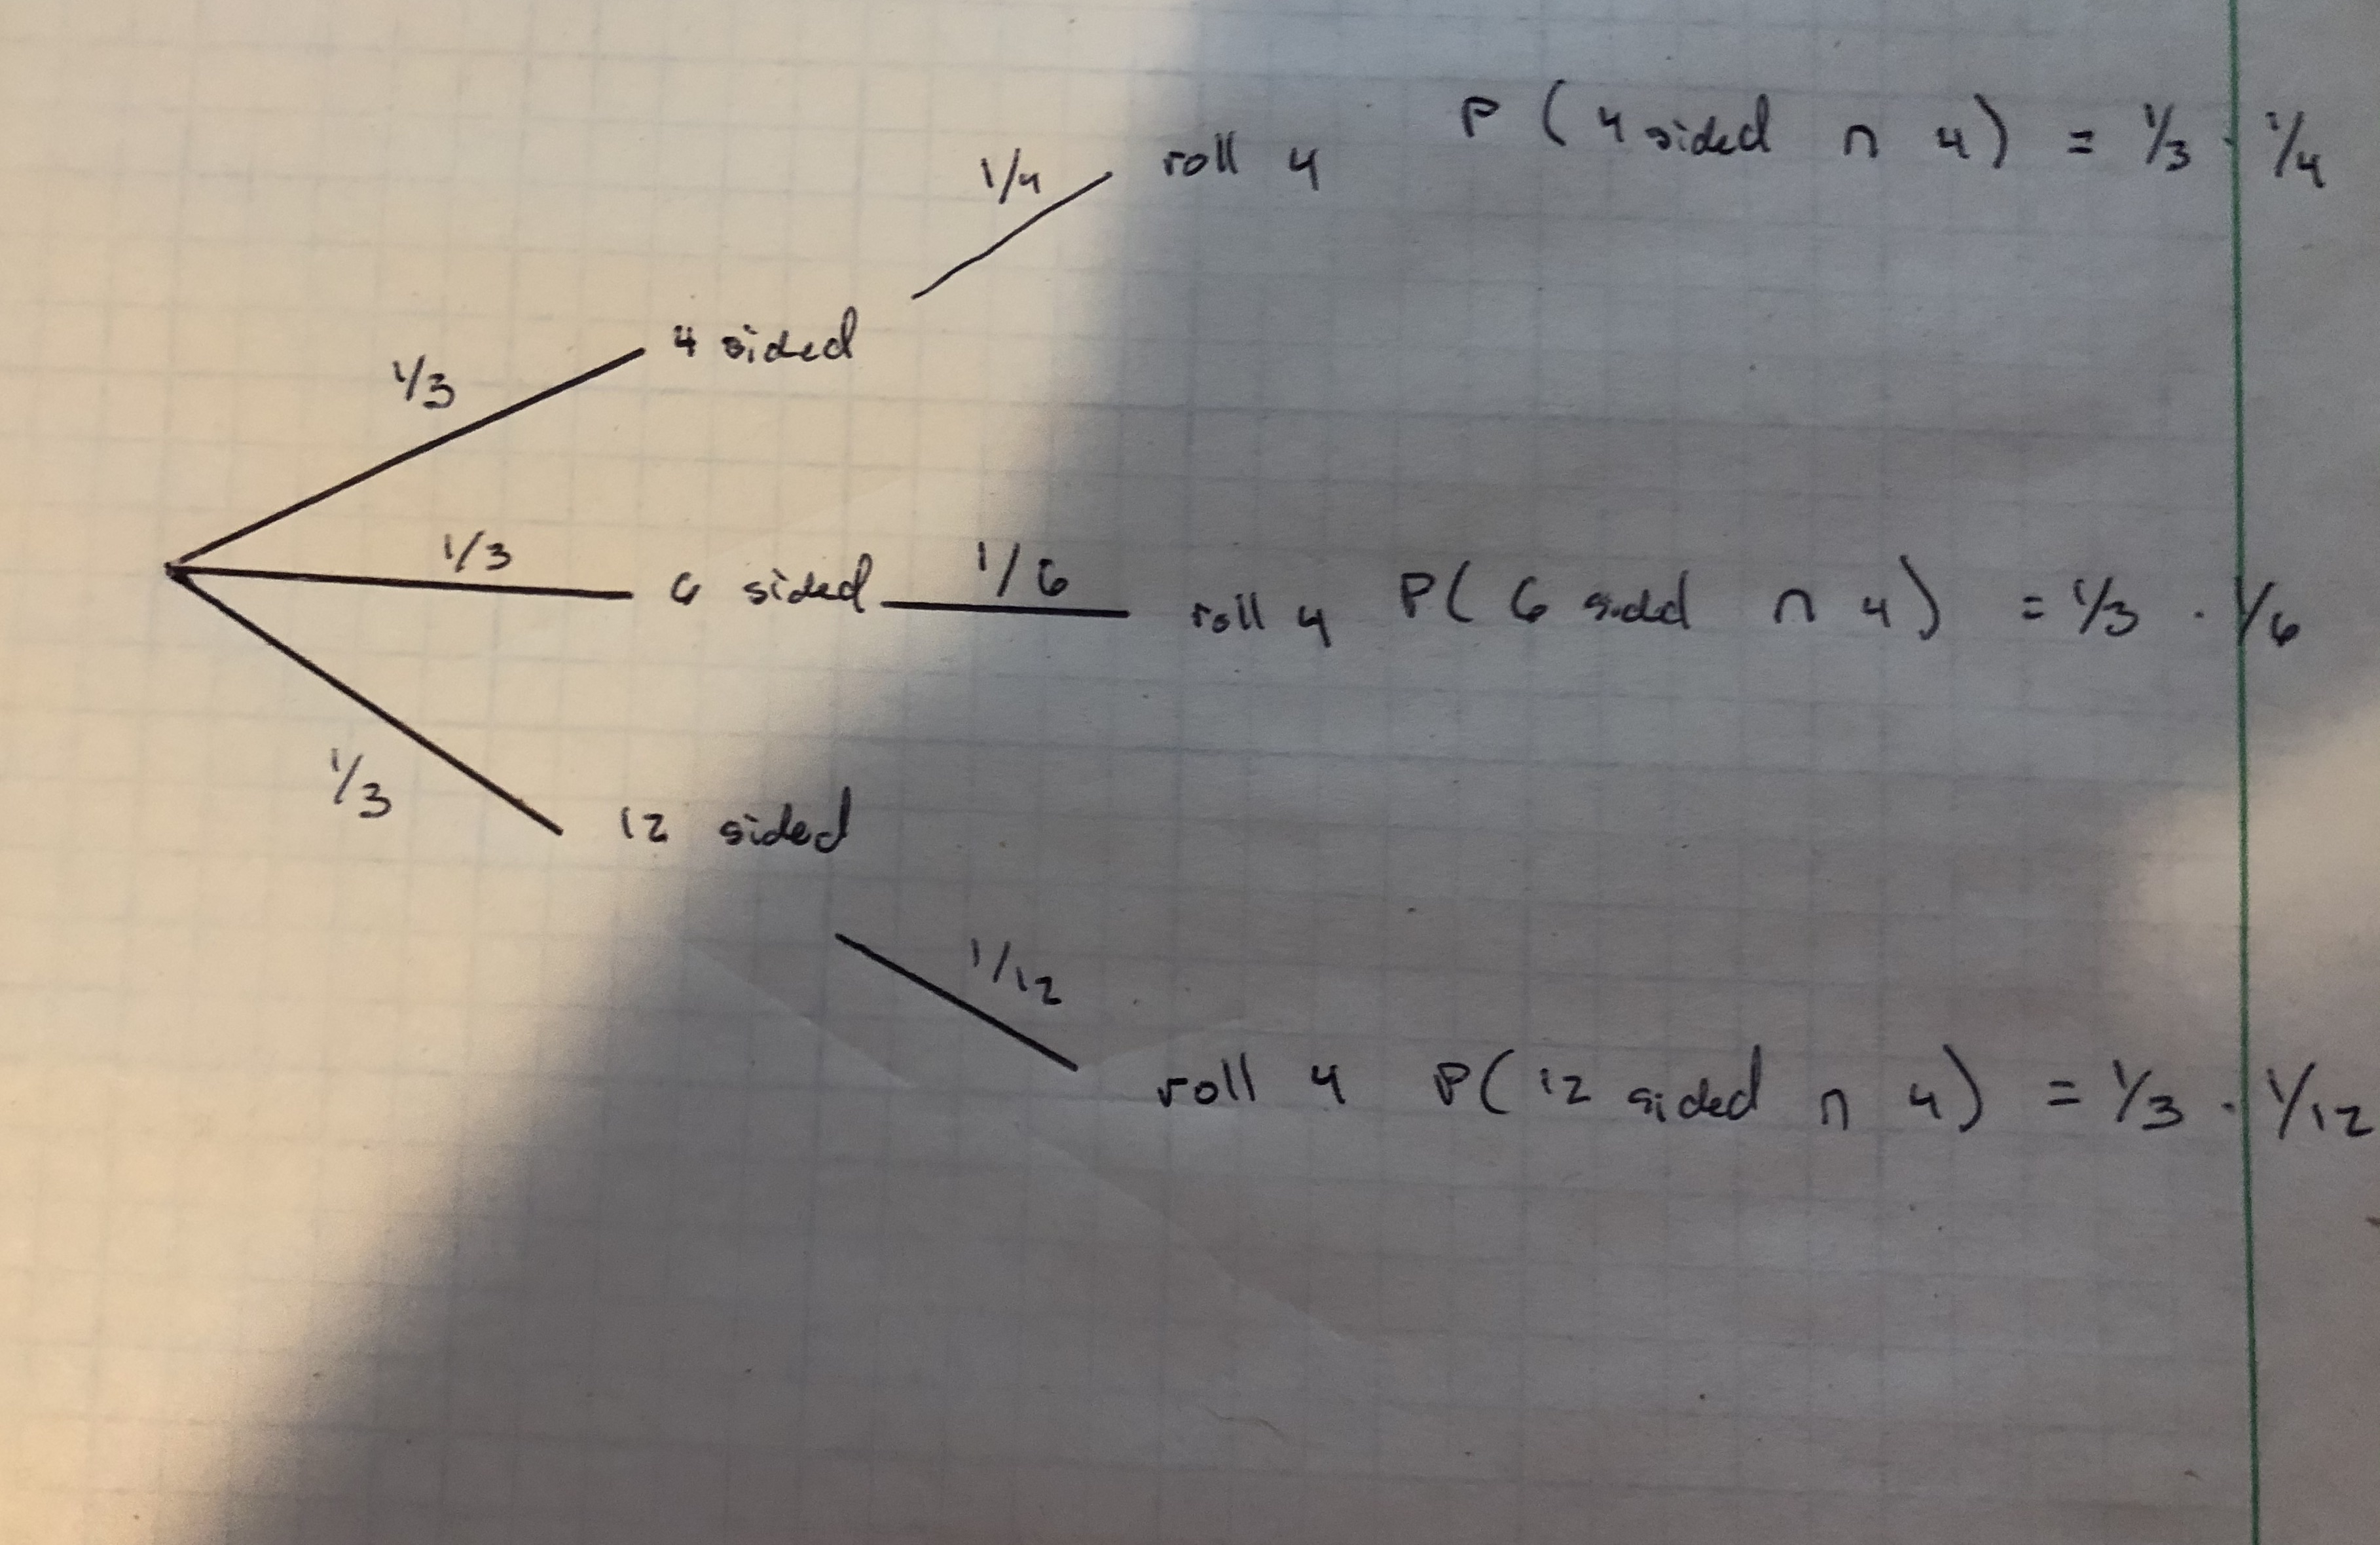 1/4 roll 4 P(4 sided ∩ 4) = 1/3 · 1/4
1/3 4 sided
1/3 6 sided 1/6 roll 4 P(6 sided ∩ 4) = 1/3 · 1/6
1/3 12 sided
1/12 roll 4 P(12 sided ∩ 4) = 1/3 · 1/12